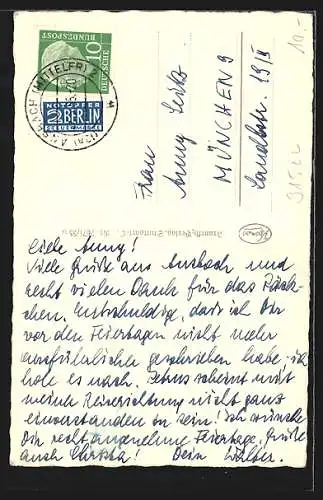 10.-
10
DEUTSCHE
BUNDESPOST
(13a) ANSBACH (MITTELFR) 2
NOTOPFER
2 BERLIN
STEUERMARKE
Frau
Anny
MÜNCHEN 9
19/II
Liebe Anny!
Viele Grüße aus Ansbach und
recht vielen Dank für das Päck-
chen. Entschuldige, dass ich Dir
vor den Feiertagen nicht mehr
ausführlicher geschrieben habe, ich
hole es nach. scheint mit
meiner nicht ganz
einverstanden zu sein! Ich wünsche
Dir recht angenehme Feiertage. Grüße
auch ! Dein Walter.